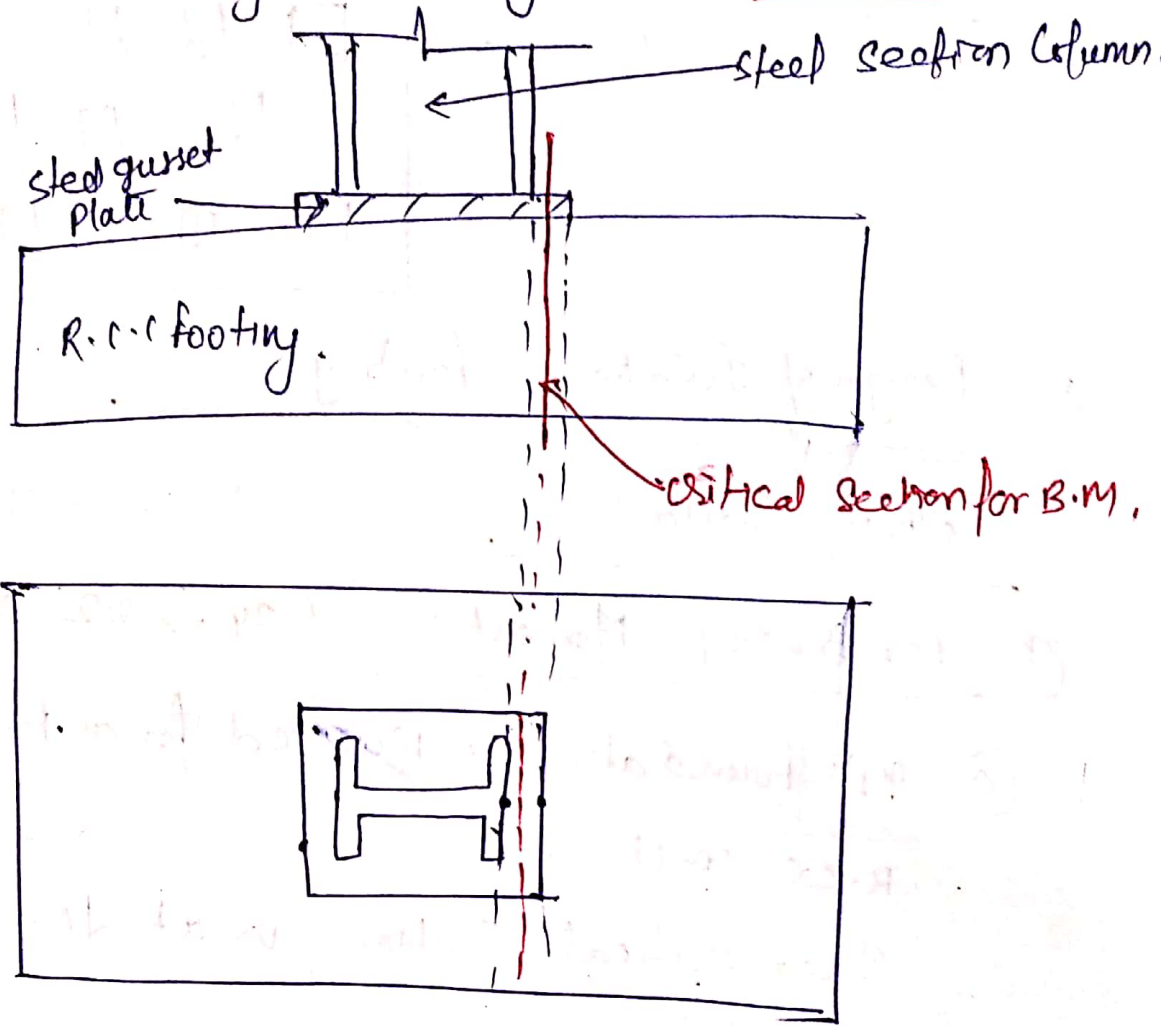 steel section Column.
steel gusset
Plate
R.C.C footing.
critical section for B.M.